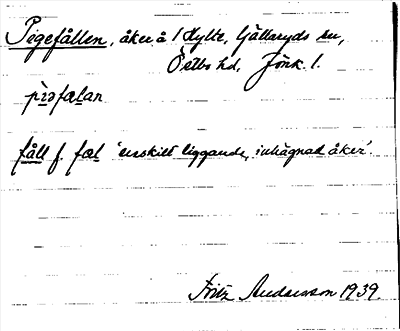 Pigefållen, åker å 1 Hylte, Gällaryds sn,
Östbo hd, Jönk. l.
fåll f. fæl 'enskilt liggande, inhägnad åker'.
Fritz Andersson 1939.